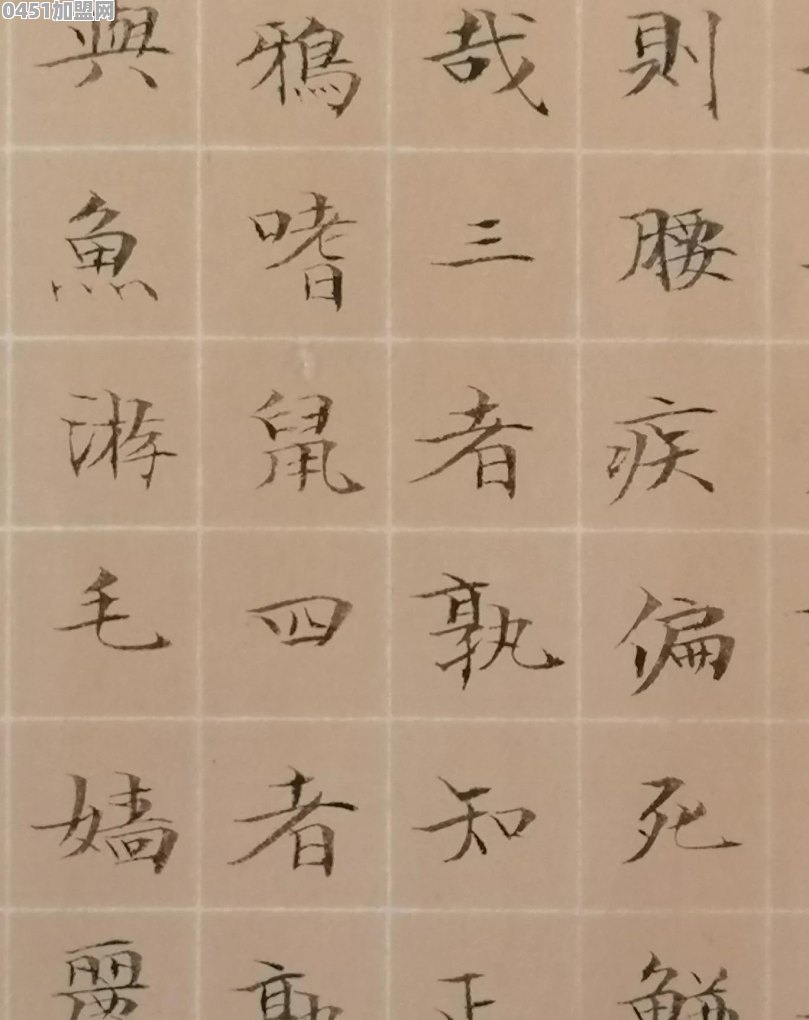 0451加盟网
則腰疾偏死
哉三者孰知正
鴉嗜鼠四者孰
與魚游毛嬙麗